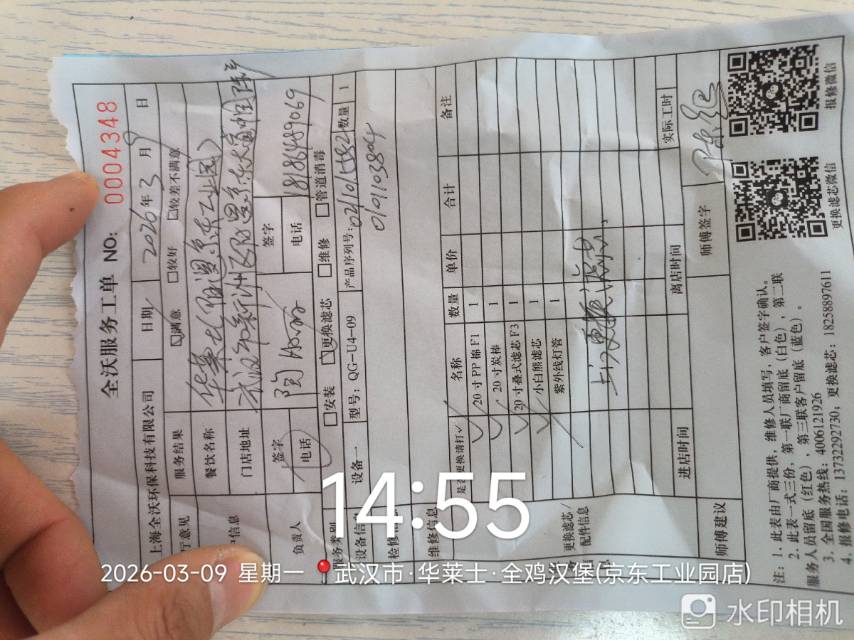 全沃服务工单 NO: 0004348
上海全沃环保科技有限公司 日期 2026年3月9日
服务结果 满意 较好 较差不满意
餐饮名称 华莱士(阳逻京东工业园)
门店地址 武汉市新洲区阳逻京东大道恒阳
负责人 签字 签字
电话 电话 18186489069
安装 更换滤芯 维修 管道消毒
设备一 型号: QG-U4-09 产品序列号: 数量 1
是否更换请打✓ 名称 数量 单价 合计 备注
20寸PP棉F1 1
20寸炭棒 1
20寸叠式滤芯F3 1
小白熊滤芯 1
紫外线灯管 1
更换滤芯/
配件信息
进店时间 离店时间 实际工时
师傅建议 师傅签字
更换滤芯微信 报修微信
注: 1、此表由厂商提供,维修人员填写,客户签字确认。
2、此表一式三份,第一联厂商留底(白色),第二联
服务人员留底(红色),第三联客户留底(蓝色)。
3、全国服务热线: 4006121926
4、报修电话: 13732292730; 更换滤芯: 18258897611
14:55
2026-03-09 星期一 武汉市·华莱士·全鸡汉堡(京东工业园店)
水印相机